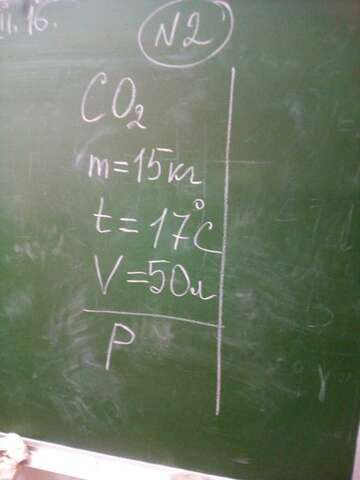 11.16.
N2
CO₂
m=15кг
t=17°C
V=50л
P